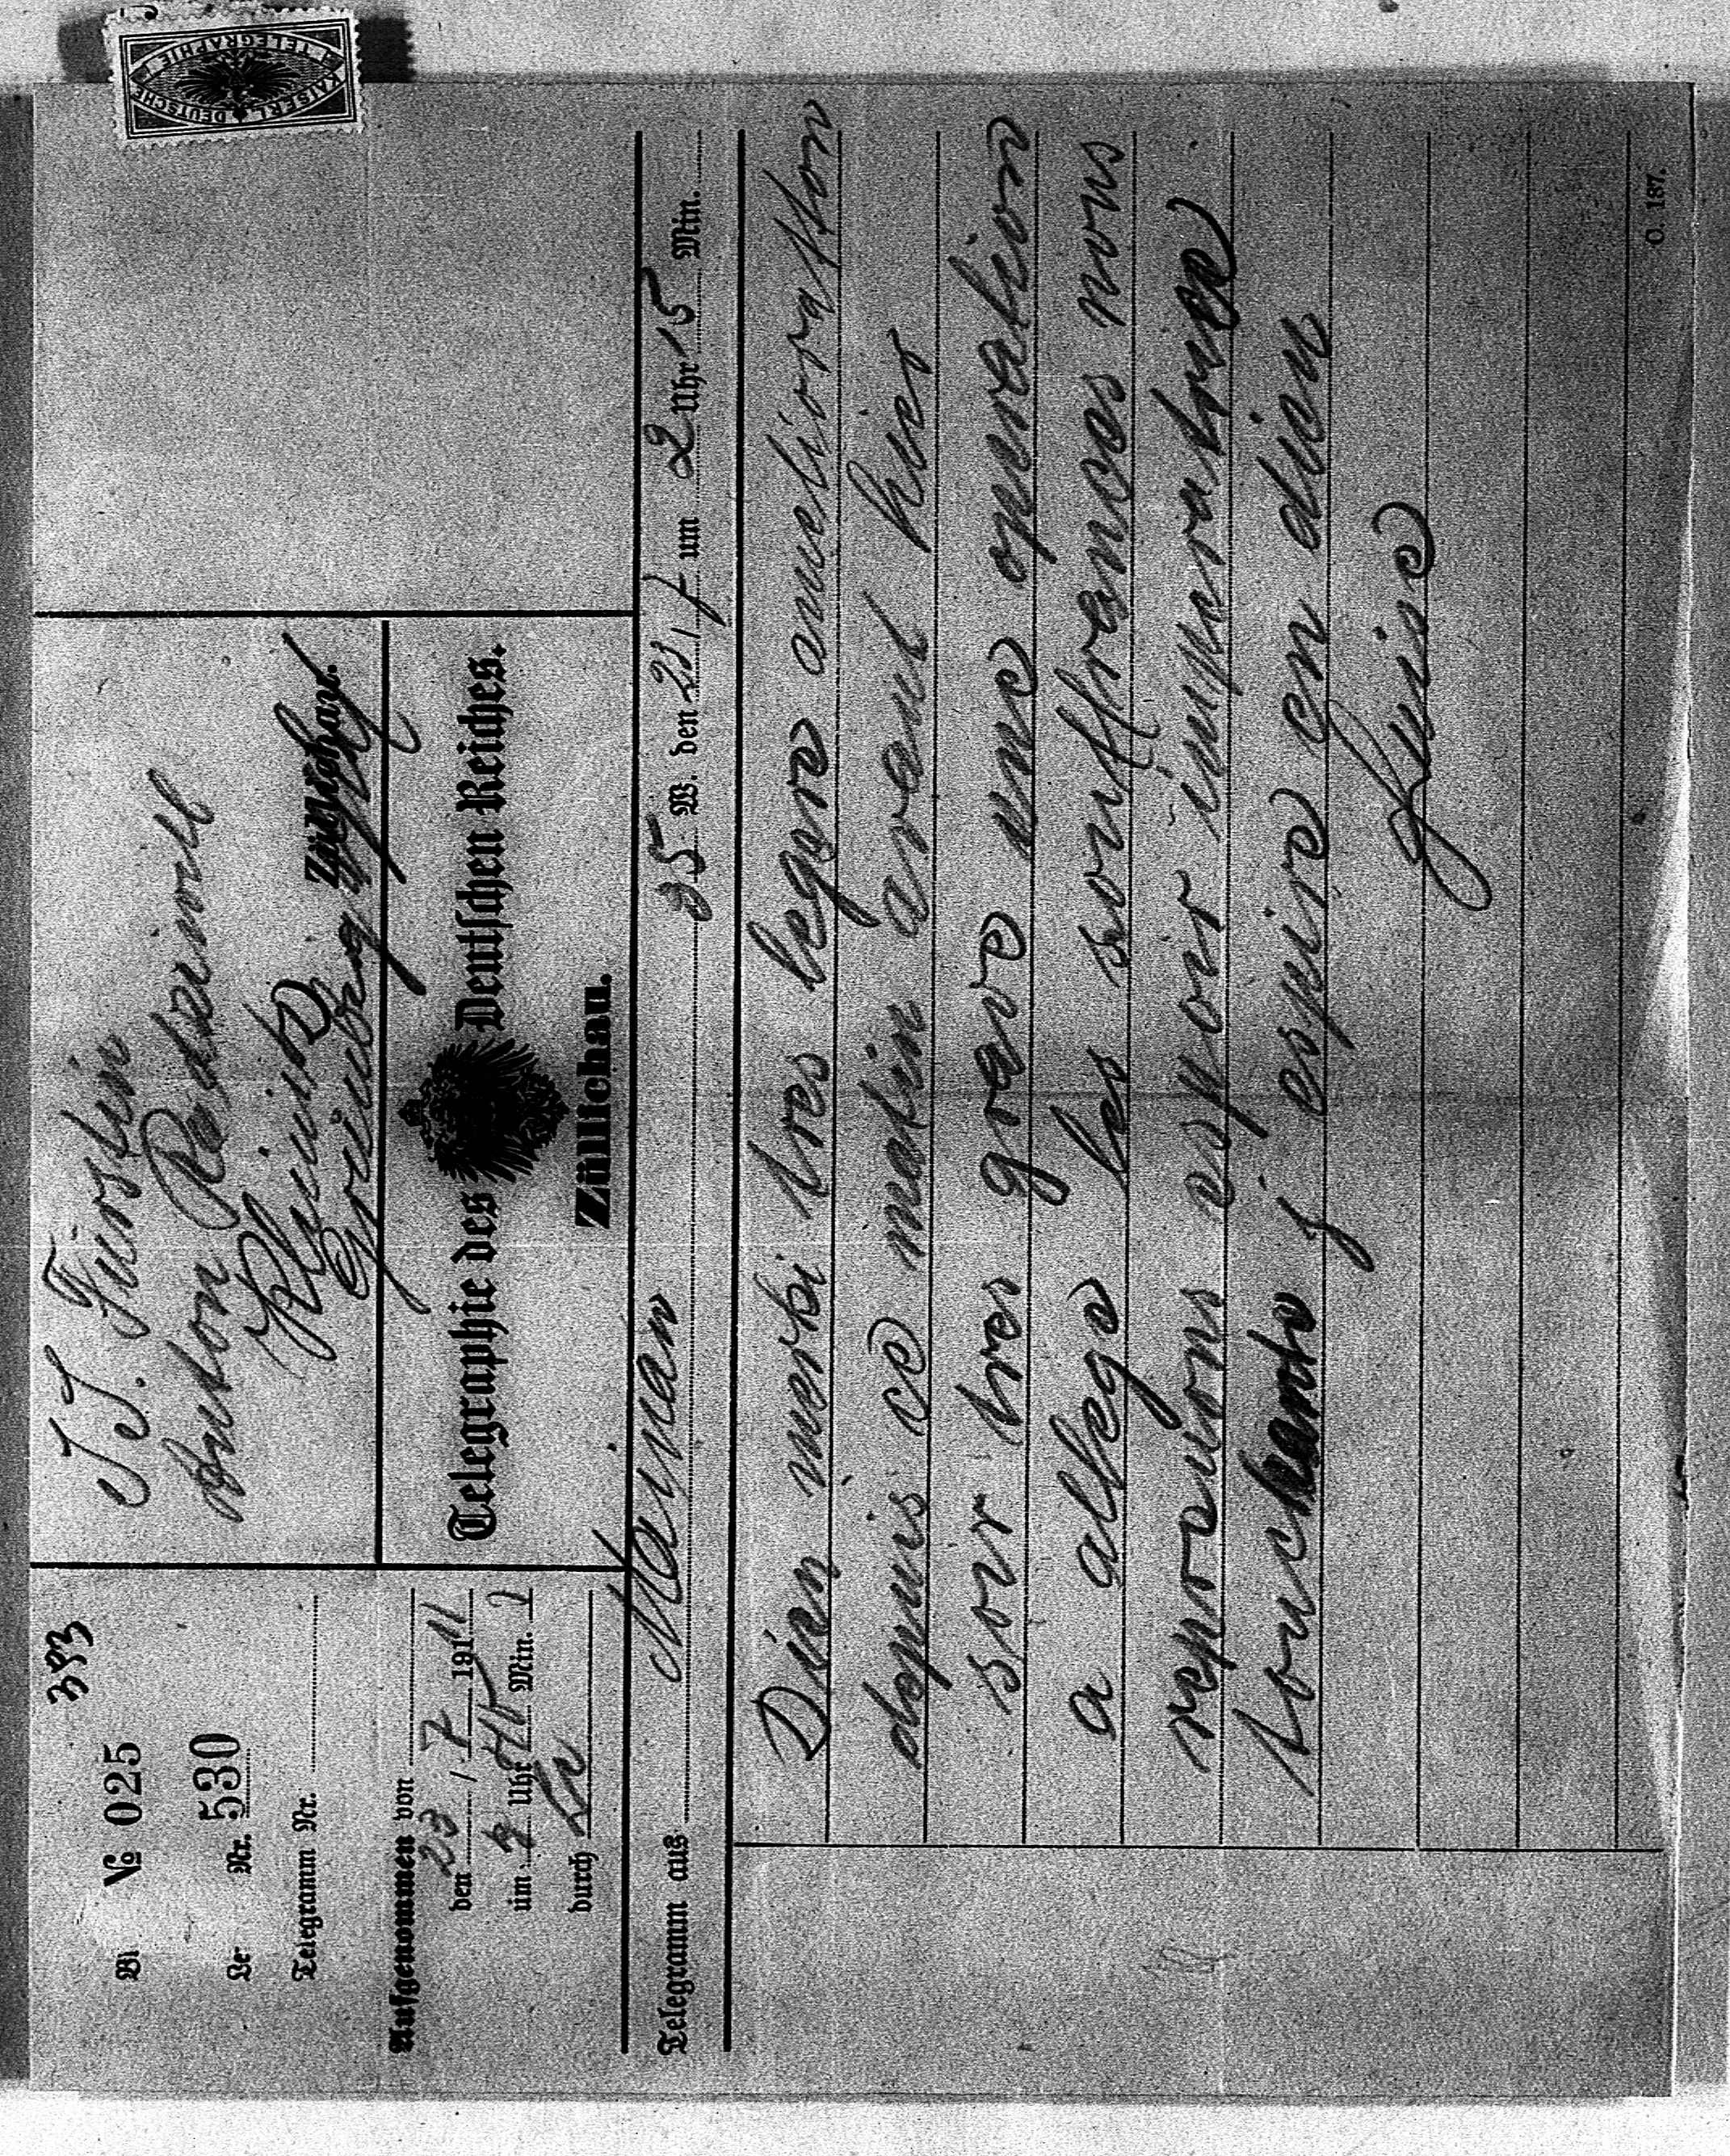 383
№ 025
Nr. 530
Telegramm Nr.
Aufgenommen von
den 23 / 7 1911
um Uhr Min.
durch
J. J. Fürstin
Anton Radziwill
Kleinitz
Grünberg
Züllichau.
Telegraphie des Deutschen Reiches.
Züllichau.
KAISERL. DEUTSCHE TELEGRAPHIE
Telegramm aus Mainau 35 W. den 23/7 um 2 Uhr 15 Min.
Dien merki tres legere amelioratton
depuis ce matin avant hier
sovr tres grave une operalion
a allege les souffrances nous
reprenons espoir imperatrice
touchante j espire en dien
Luise
O. 187.